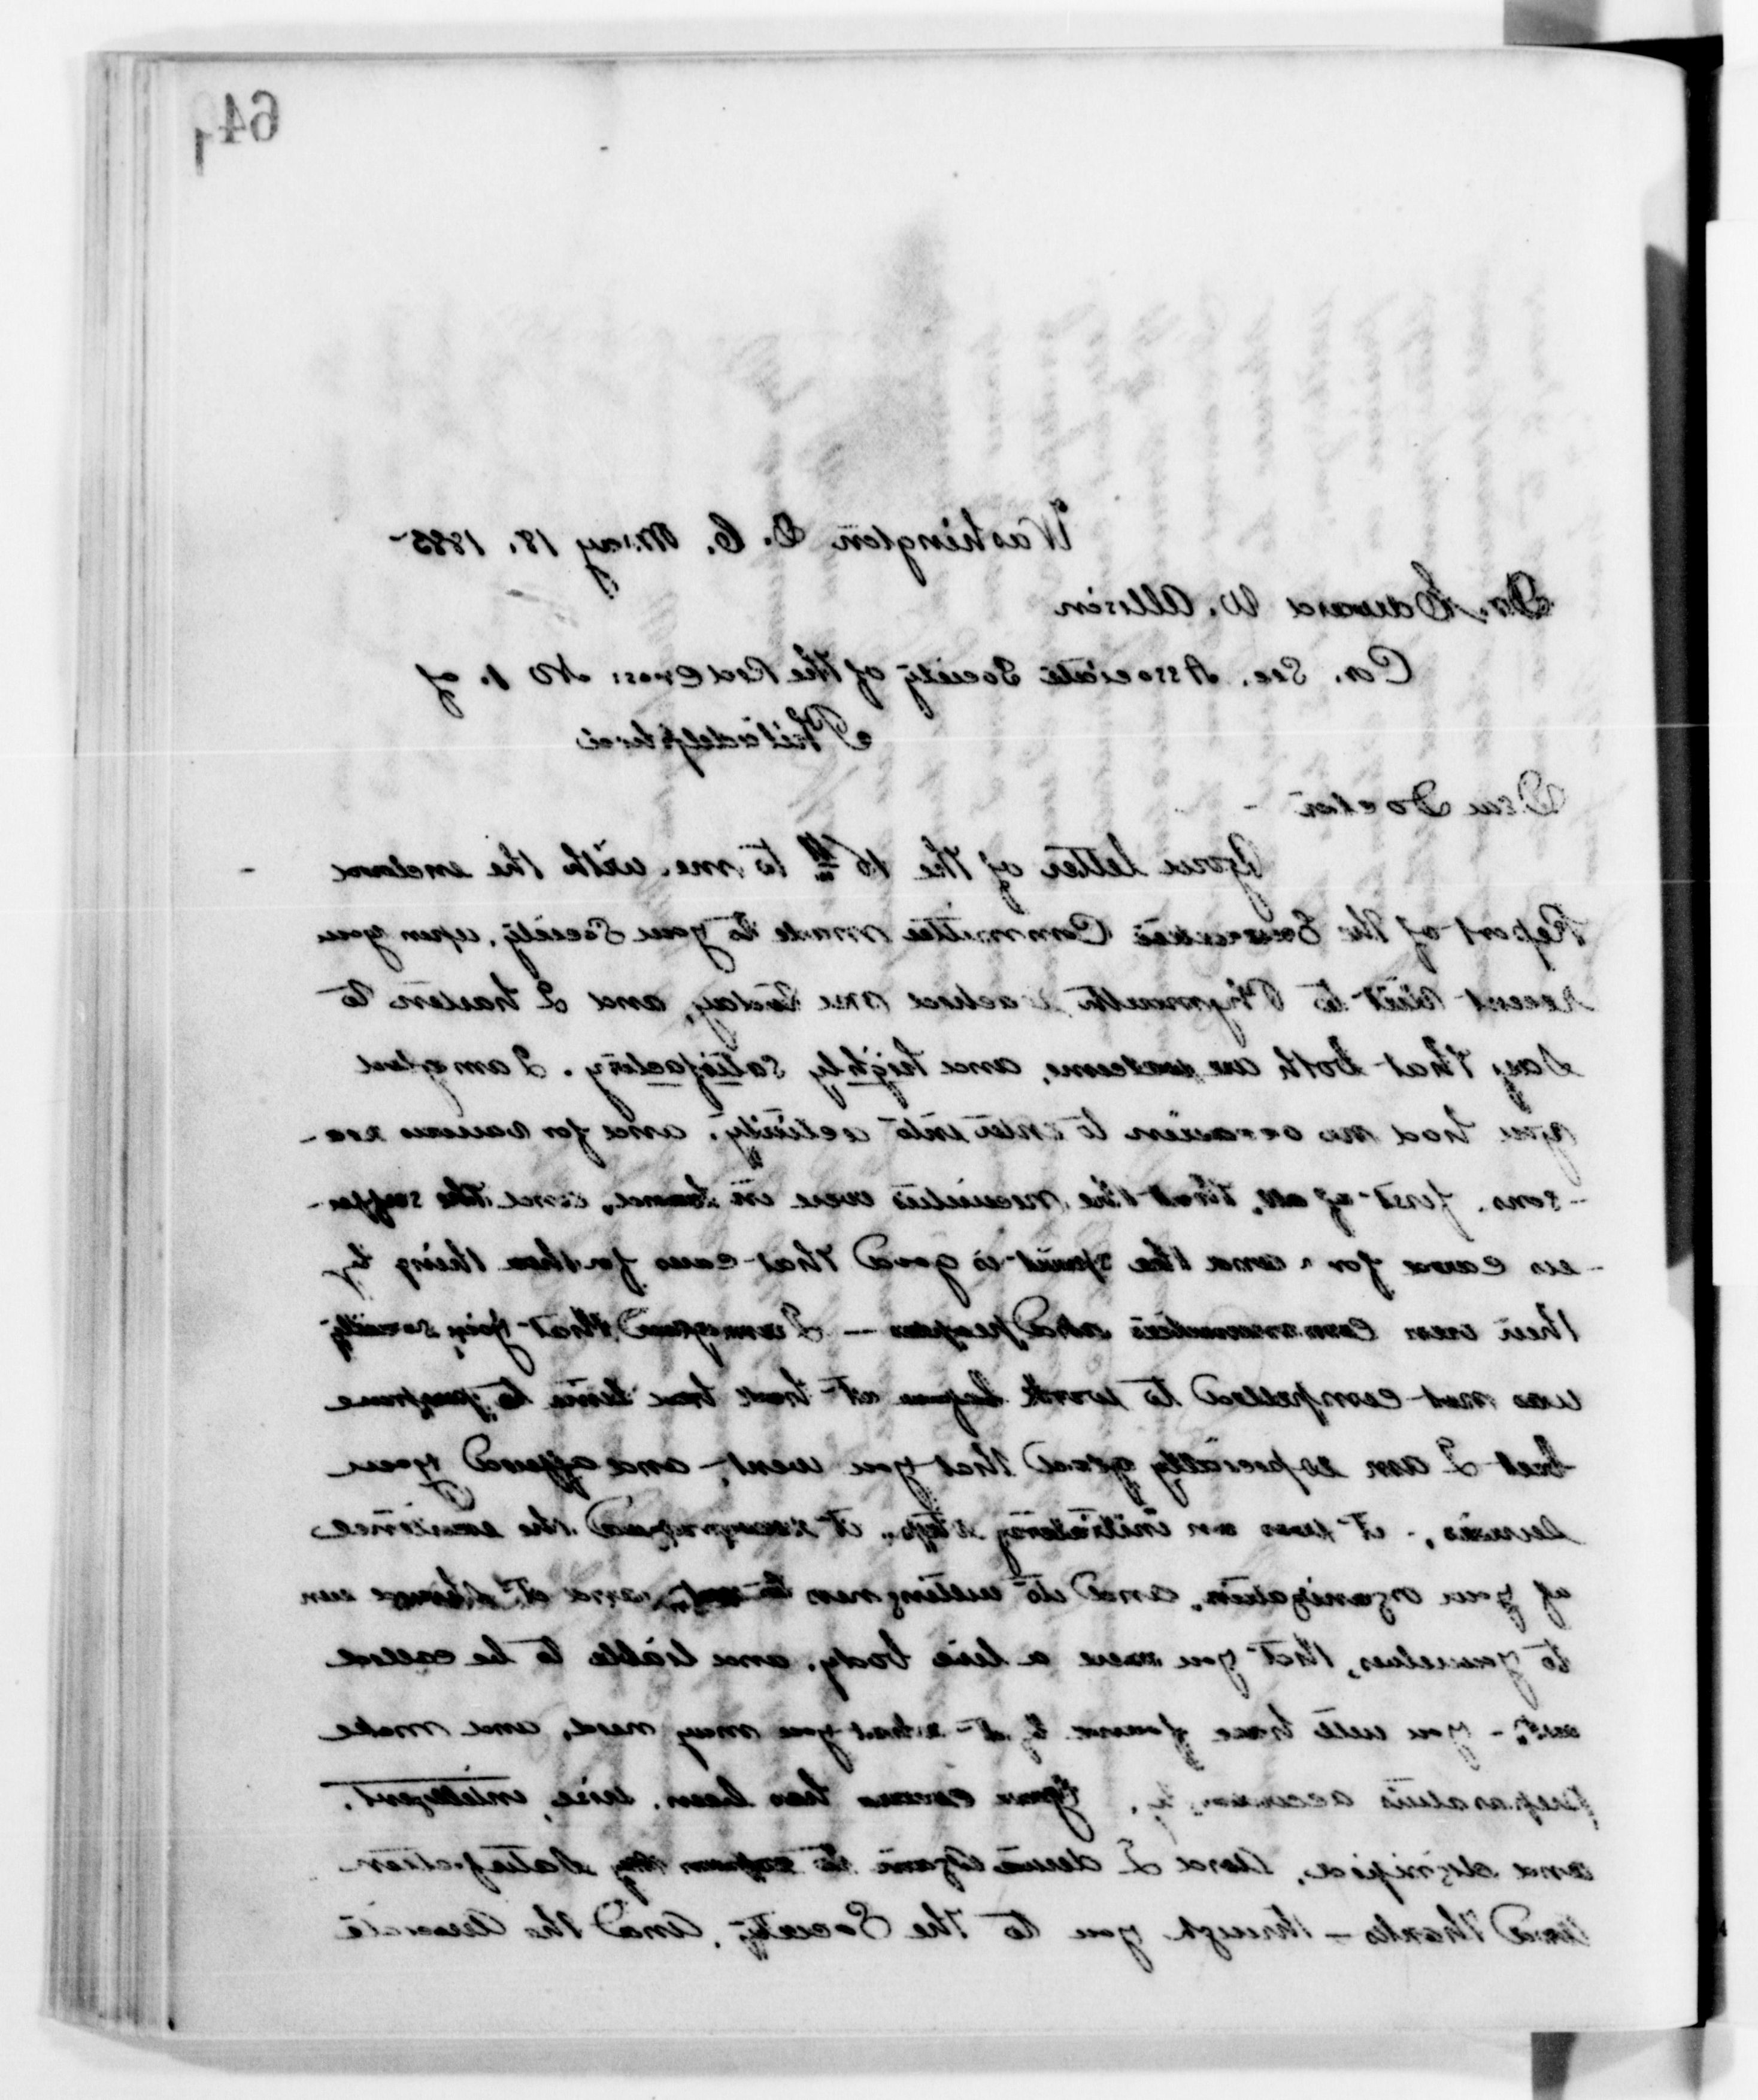 641
Washington D. C. May 18. 1885
Dr. Edward W. Allison
Cor. Sec. Associate Society of the Red Cross No 1. of
Philadelphia
Dear Doctor -
Your letter of the 16th to me, with the inclosed
Report of the Executive Committee made to your Society, upon your
recent visit to Plymouth reached me today, and I hasten to
say that both are welcome, and highly satisfactory. I am glad
you had no occasion to enter into activity, and for various rea-
-sons. first of all, that the necessities were in hand, and the suffer-
-ers cared for, and the spirit is good that cares for these things by
their own communities and people — I am glad that your society
was not compelled to work before it had had time to prepare
but I am especially glad that you went, and offered your
services, - it was an initiatory step. it recognized the existence
of your organization, and its willingness to and it showed even
to yourselves, that you were a live body, and liable to be called
out, - you will have found by it what you may need, and make
preparations accordingly. Your course has been, wise, intelligent,
and dignified, and I desire again to express my satisfaction
and thanks - through you to the Society, and the Associate